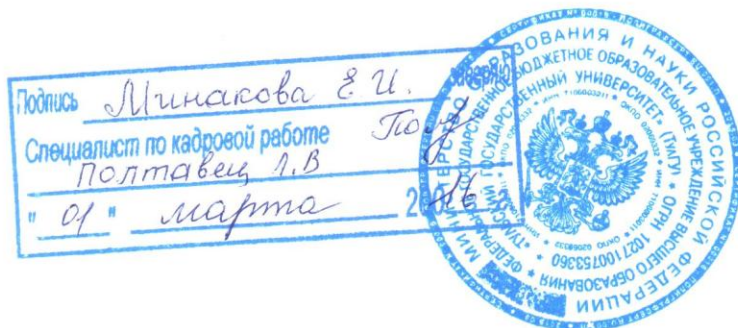 Подпись Минакова Е. И. заверяю
Специалист по кадровой работе
Полтавец Л.В
" 01 " марта 2016
МИНИСТЕРСТВО ОБРАЗОВАНИЯ И НАУКИ РОССИЙСКОЙ ФЕДЕРАЦИИ
ФЕДЕРАЛЬНОЕ ГОСУДАРСТВЕННОЕ БЮДЖЕТНОЕ ОБРАЗОВАТЕЛЬНОЕ УЧРЕЖДЕНИЕ ВЫСШЕГО ОБРАЗОВАНИЯ
"ТУЛЬСКИЙ ГОСУДАРСТВЕННЫЙ УНИВЕРСИТЕТ" (ТулГУ) * ОГРН 1027100753360